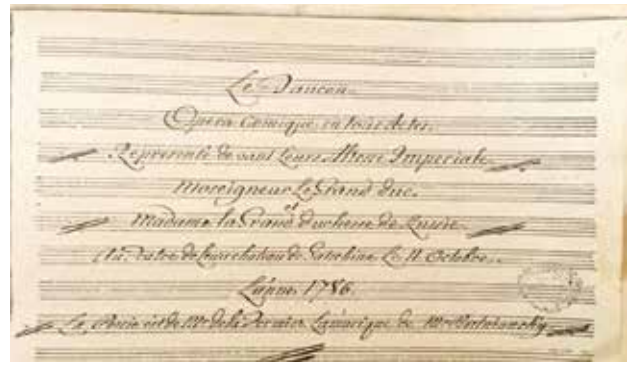 Le Faucon
Opera Comique en trois actes
Represente devant Leurs Altesse Imperiale
Monseigneur Le Grand Duc
et
Madame la Grand Duchesse de Russie
Au de Leur chateau de Gatschina Le 11 Octobre
L'année 1786.
La est de Mr de la Fermier La musique de Mr Bortnianskÿ